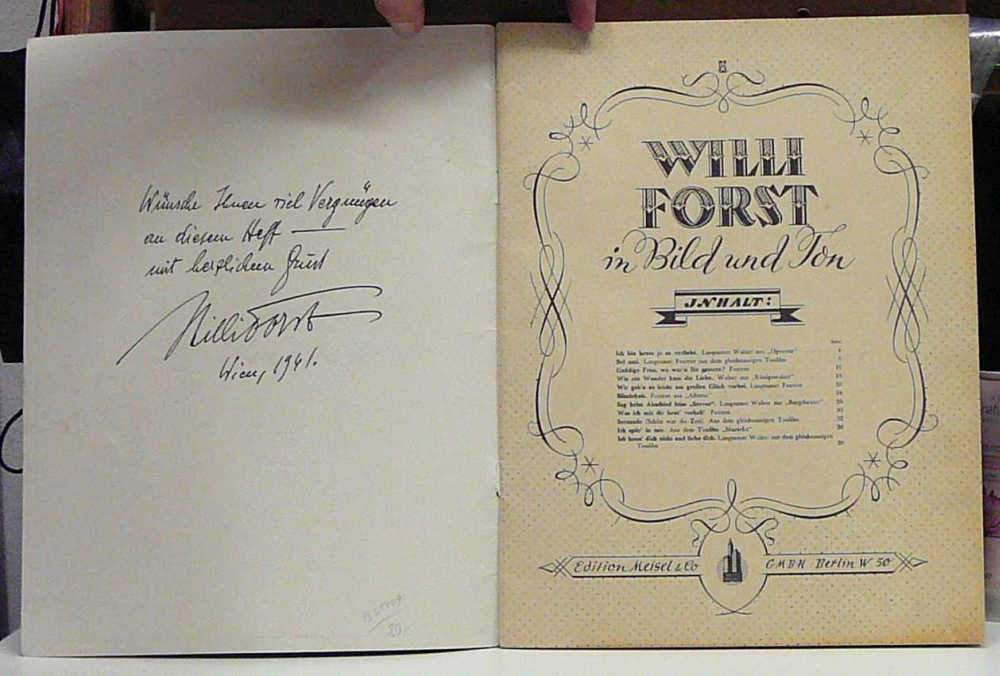 Wünsche Ihnen viel Vergnügen
an diesem Heft —
mit herzlichem Gruß
Willi Forst
Wien, 1941.
WILLI
FORST
in Bild und Ton
INHALT:
Seite
Ich bin heute ja so verliebt. Langsamer Walzer aus „Operette“
Bel ami. Langsamer Foxtrot aus dem gleichnamigen Tonfilm
Gnädige Frau, wo war'n Sie gestern? Foxtrot
Wie ein Wunder kam die Liebe. Walzer aus „Königswalzer“
Wir geh'n so leicht am großen Glück vorbei. Langsamer Foxtrot
Foxtrot aus „Allotria“
Sag beim Abschied leise „Servus“. Langsamer Walzer aus „Burgtheater“
Was ich mir dir heut' vorhab' Foxtrot
Serenade Aus dem gleichnamigen Tonfilm
Ich spür' in mir. Aus dem Tonfilm „Mazurka“
Ich kenn' dich nicht und liebe dich. Langsamer Walzer aus dem gleichnamigen
Tonfilm
Edition Meisel & Co GMBH Berlin W 50